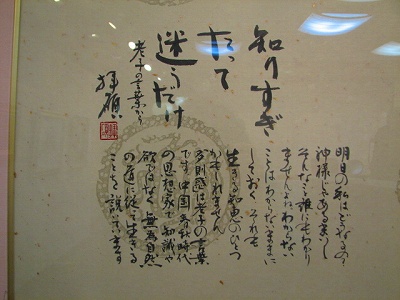 知りすぎ
たって
迷うだけ
老子の言葉から
明日の私はどうなるの?
神様じゃあるまいし
そんなこと誰にもわかり
ませんよね わからない
ことはわからないままに
しておく それも
生きる知恵のひとつ
かもしれません
多則惑は老子の言葉
です 中国 春秋時代
の思想家で 知識や
欲ではなく 無為自然
の道に従って生きる
ことを説いています